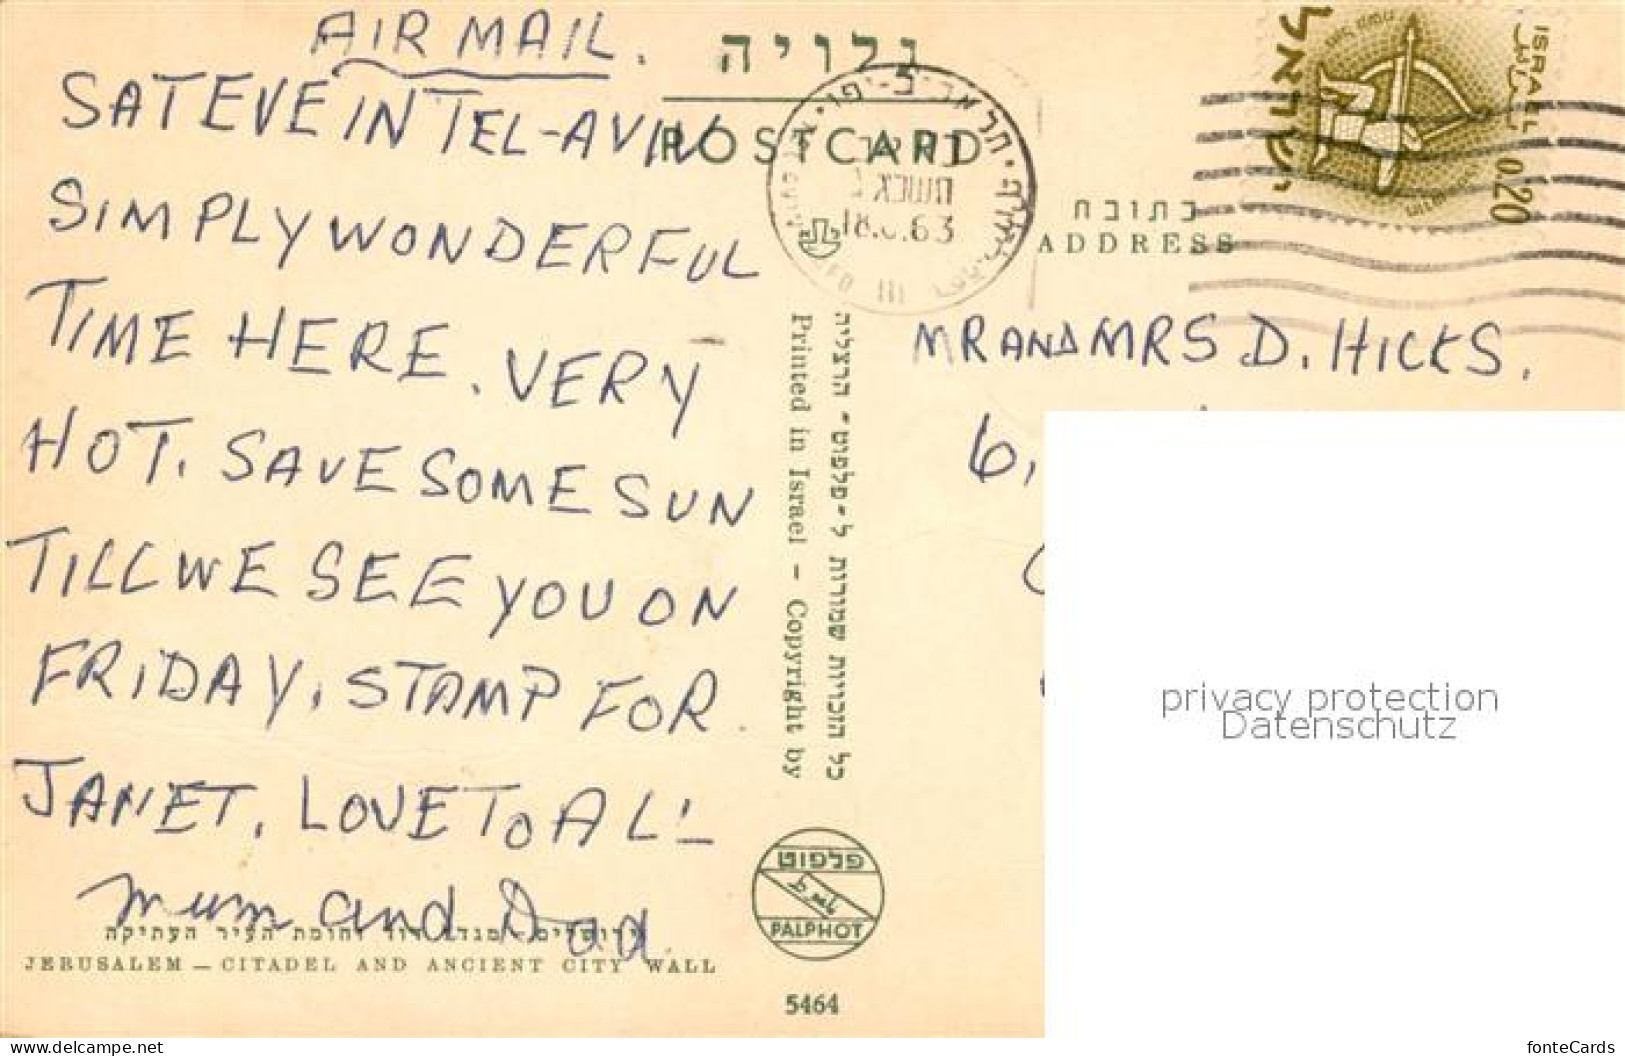 AIR MAIL.
SAT EVE IN TEL-AVIV
SIMPLY WONDERFUL
TIME HERE. VERY
HOT. SAVE SOME SUN
TILL WE SEE YOU ON
FRIDAY, STAMP FOR
JANET. LOVE TO ALL
Mum and Dad
ירושלים - מגדל דוד וחומת העיר העתיקה
JERUSALEM — CITADEL AND ANCIENT CITY WALL
גלויה
POSTCARD
18. .63
כל הזכויות שמורות ל"פלפוט" הרצליה
Printed in Israel - Copyright by
פלפוט
PALPHOT
5464
ישראל
ISRAEL
0.20
כתובת
ADDRESS
MR AND MRS D. HICKS.
6,
privacy protection
Datenschutz
www.delcampe.net
fonteCards